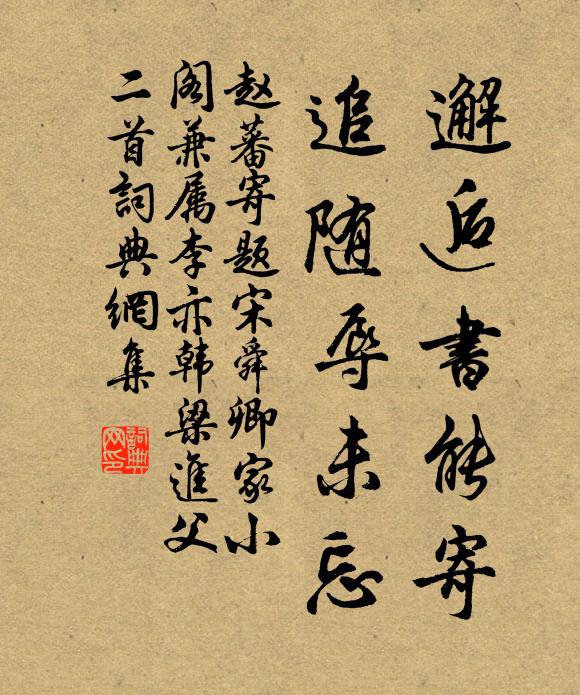 邂逅書能寄
追随辱未忘
赵蕃寄题宋舜卿家小
阁兼属李亦韩梁進父
二首詞典網集
詞典網印